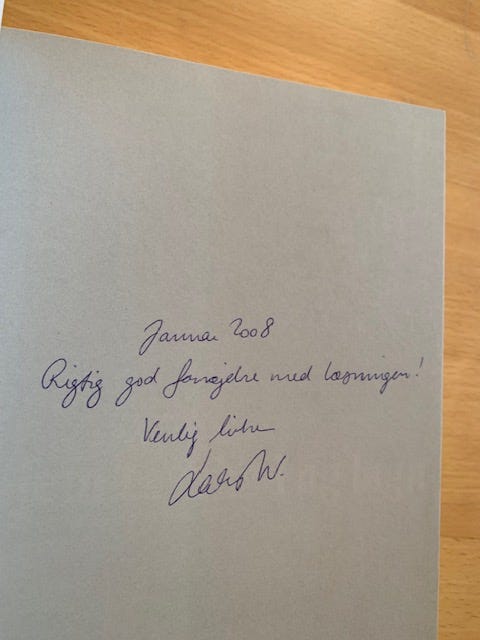 Januar 2008
Rigtig god fornøjelse med læsningen!
Venlig hilsen
W.